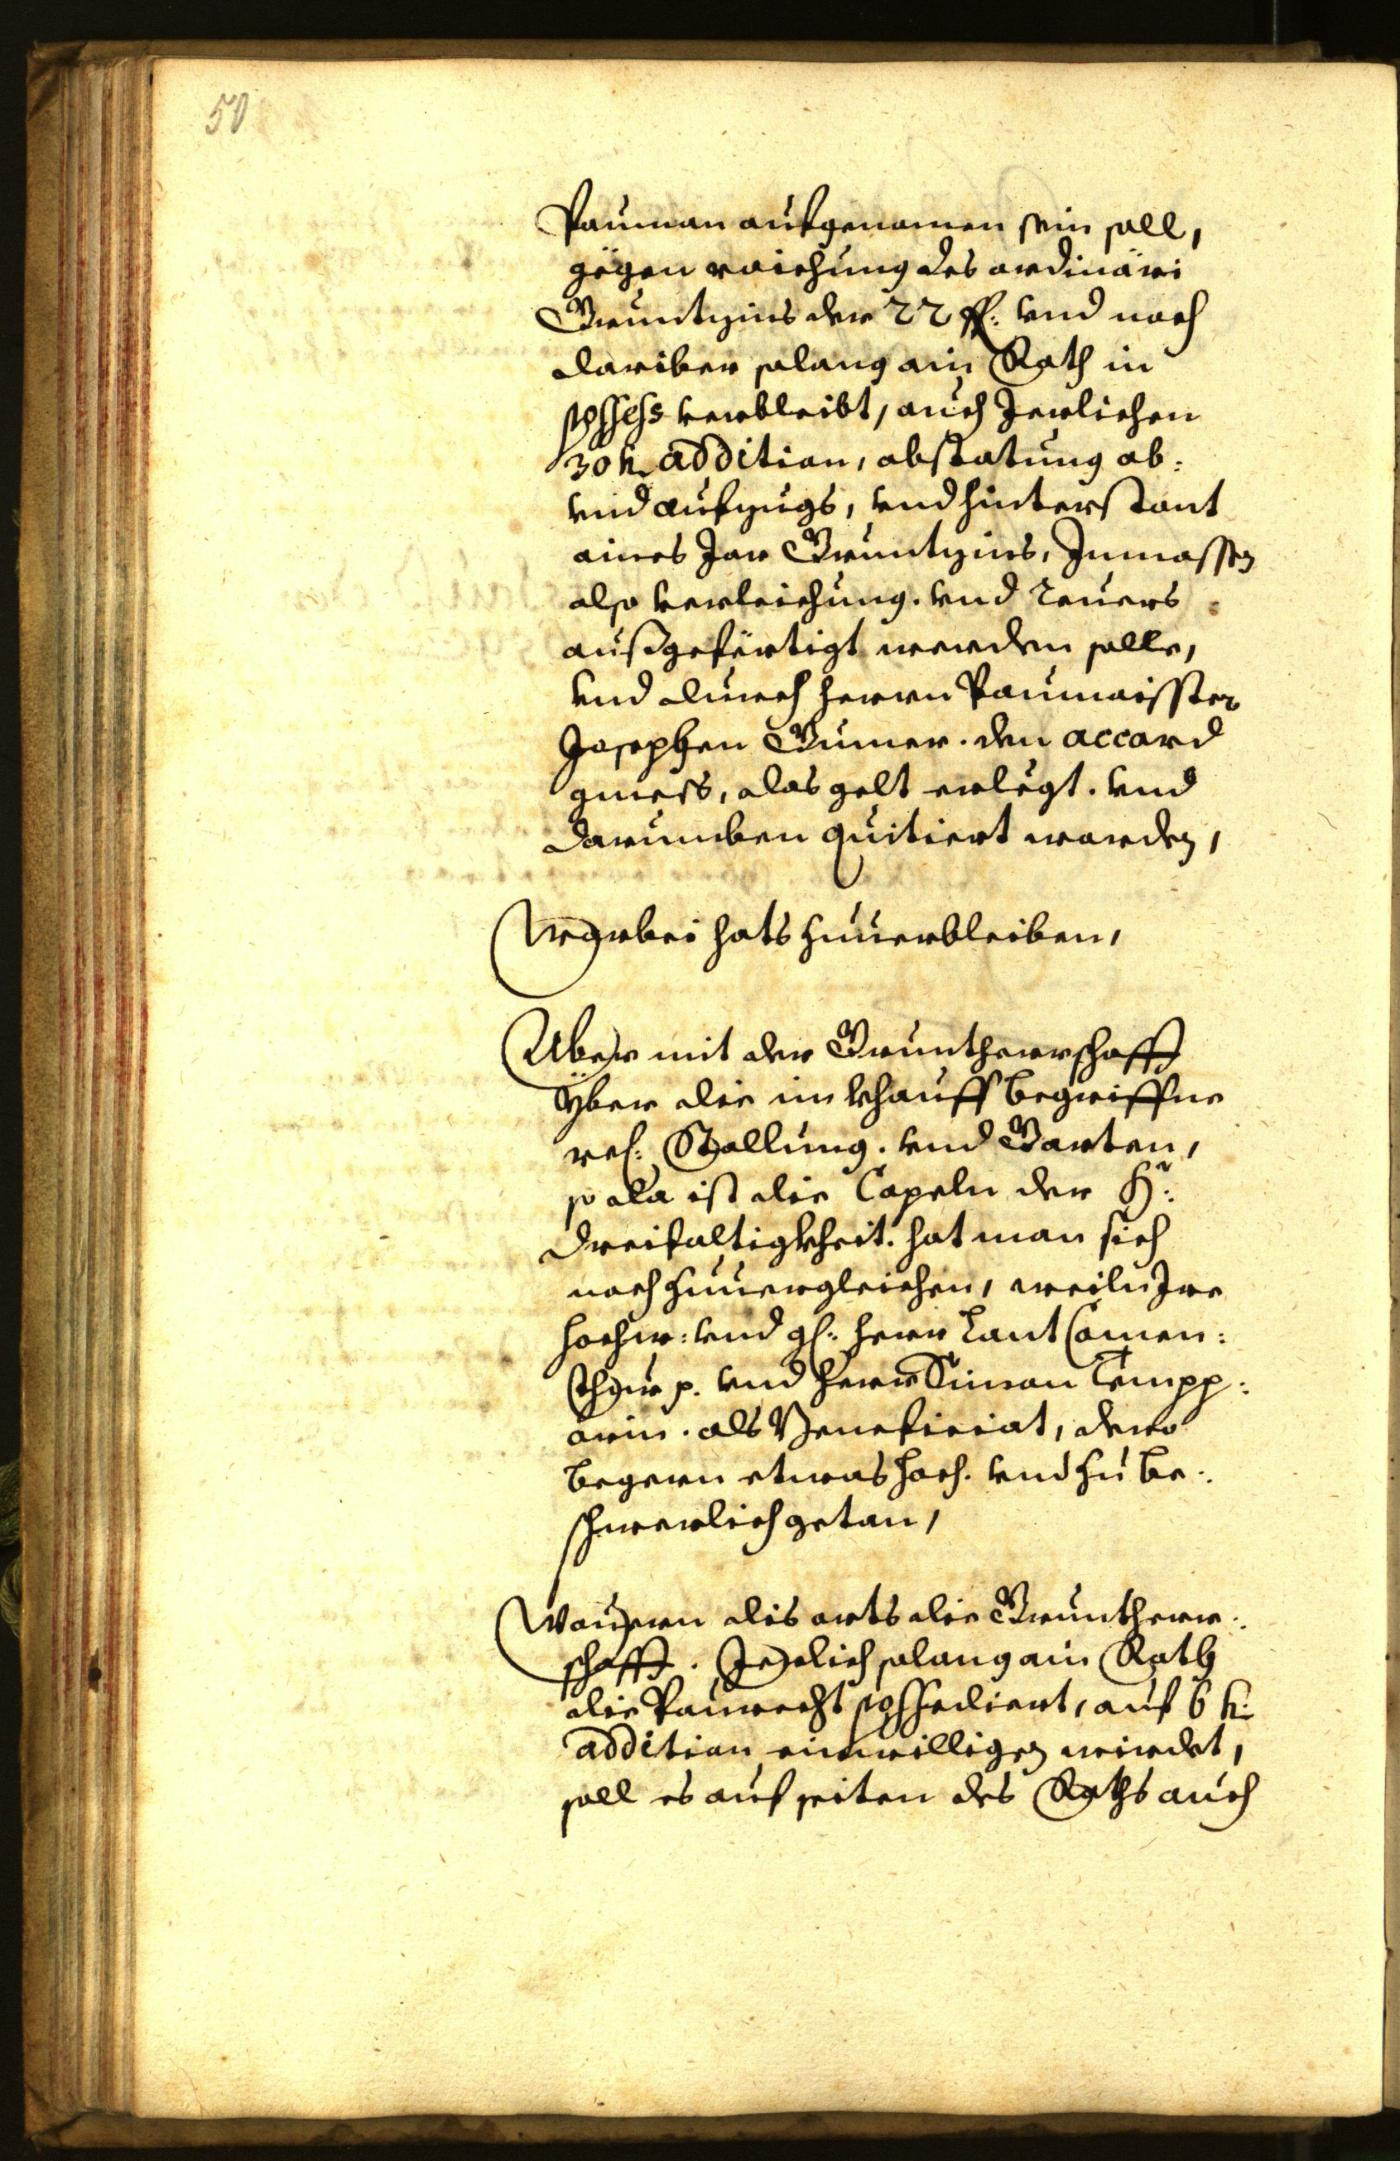 50
Pauman aufgenomen sein soll,
gegen raichung des ordinäri
Gruntzins der 22 ff: vnd noch
dariber solang ain Rath in
possess verbleibt, auch Jerlichen
30 k. addition, abstatung ab:
vnd aufzugs, vnd hinterstant
aines Jar Gruntzins, Jnmassen
also verleichung. vnd reuers
außgefertigt werden solle,
vnd durch herrn Paumaister
Josephen Gumer. den accord
gmess, das gelt erlegt. vnd
darumben quitiert worden,
Warbei hats zuuerbleiben,
Aber mit der Gruntherrschafft
yber die im khauff begriffne
res: Stallung. vnd Garten,
so da ist die Capeln der H:
Dreifaltigkheit. hat man sich
noch zuuergleichen, weiln Jre
hochw: vnd gl: herr Lant Comen:
thur p. vnd herr Simon Tempp:
arin. als Beneficiat, dero
begern etwas hoch. vnd zu be:
schwerlich getan,
Wouern dis orts die Gruntherr:
schafft. Jerlich solang ain Rath
die Paurecht possediert, auf 6 k:
addition einwilligen wirdet,
soll es auf seiten des Raths auch